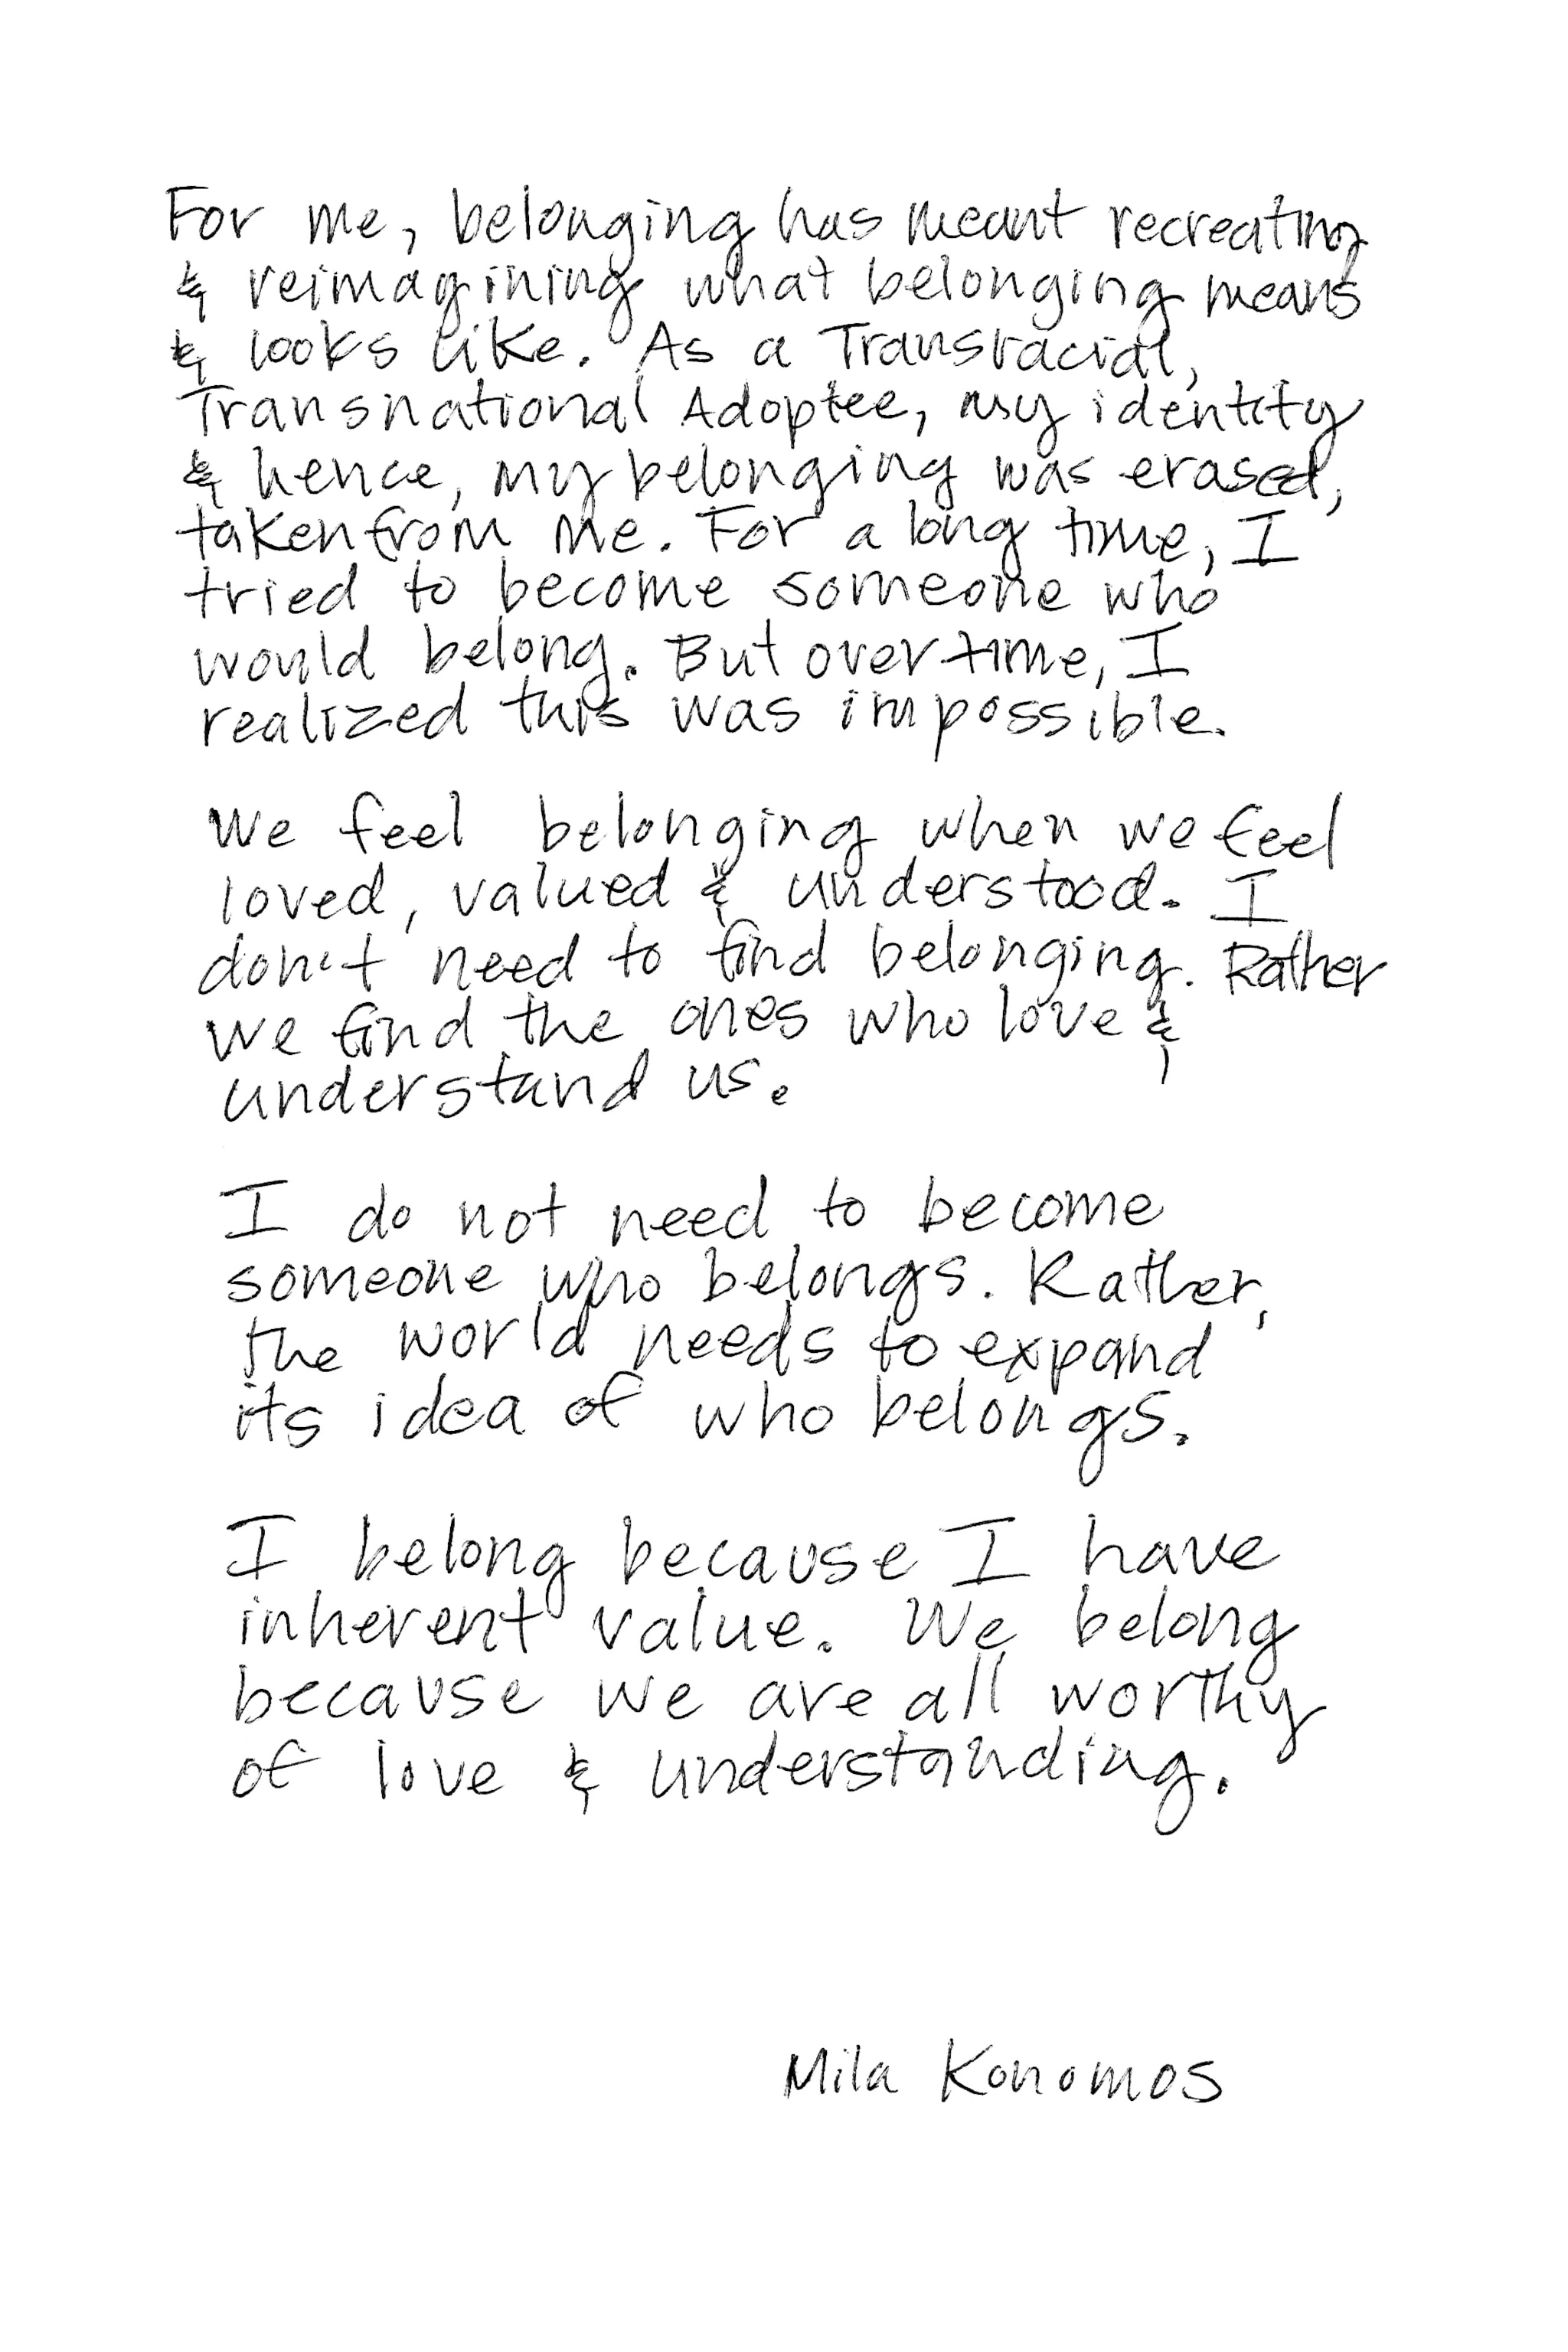 For me, belonging has meant recreating
& reimagining what belonging means
& looks like. As a Transracial,
Transnational Adoptee, my identity
& hence, my belonging was erased,
taken from me. For a long time, I
tried to become someone who
would belong. But over time, I
realized this was impossible.
We feel belonging when we feel
loved, valued & understood. I
don't need to find belonging. Rather
we find the ones who love &
understand us.
I do not need to become
someone who belongs. Rather,
the world needs to expand
its idea of who belongs.
I belong because I have
inherent value. We belong
because we are all worthy
of love & understanding.
Mila Konomos